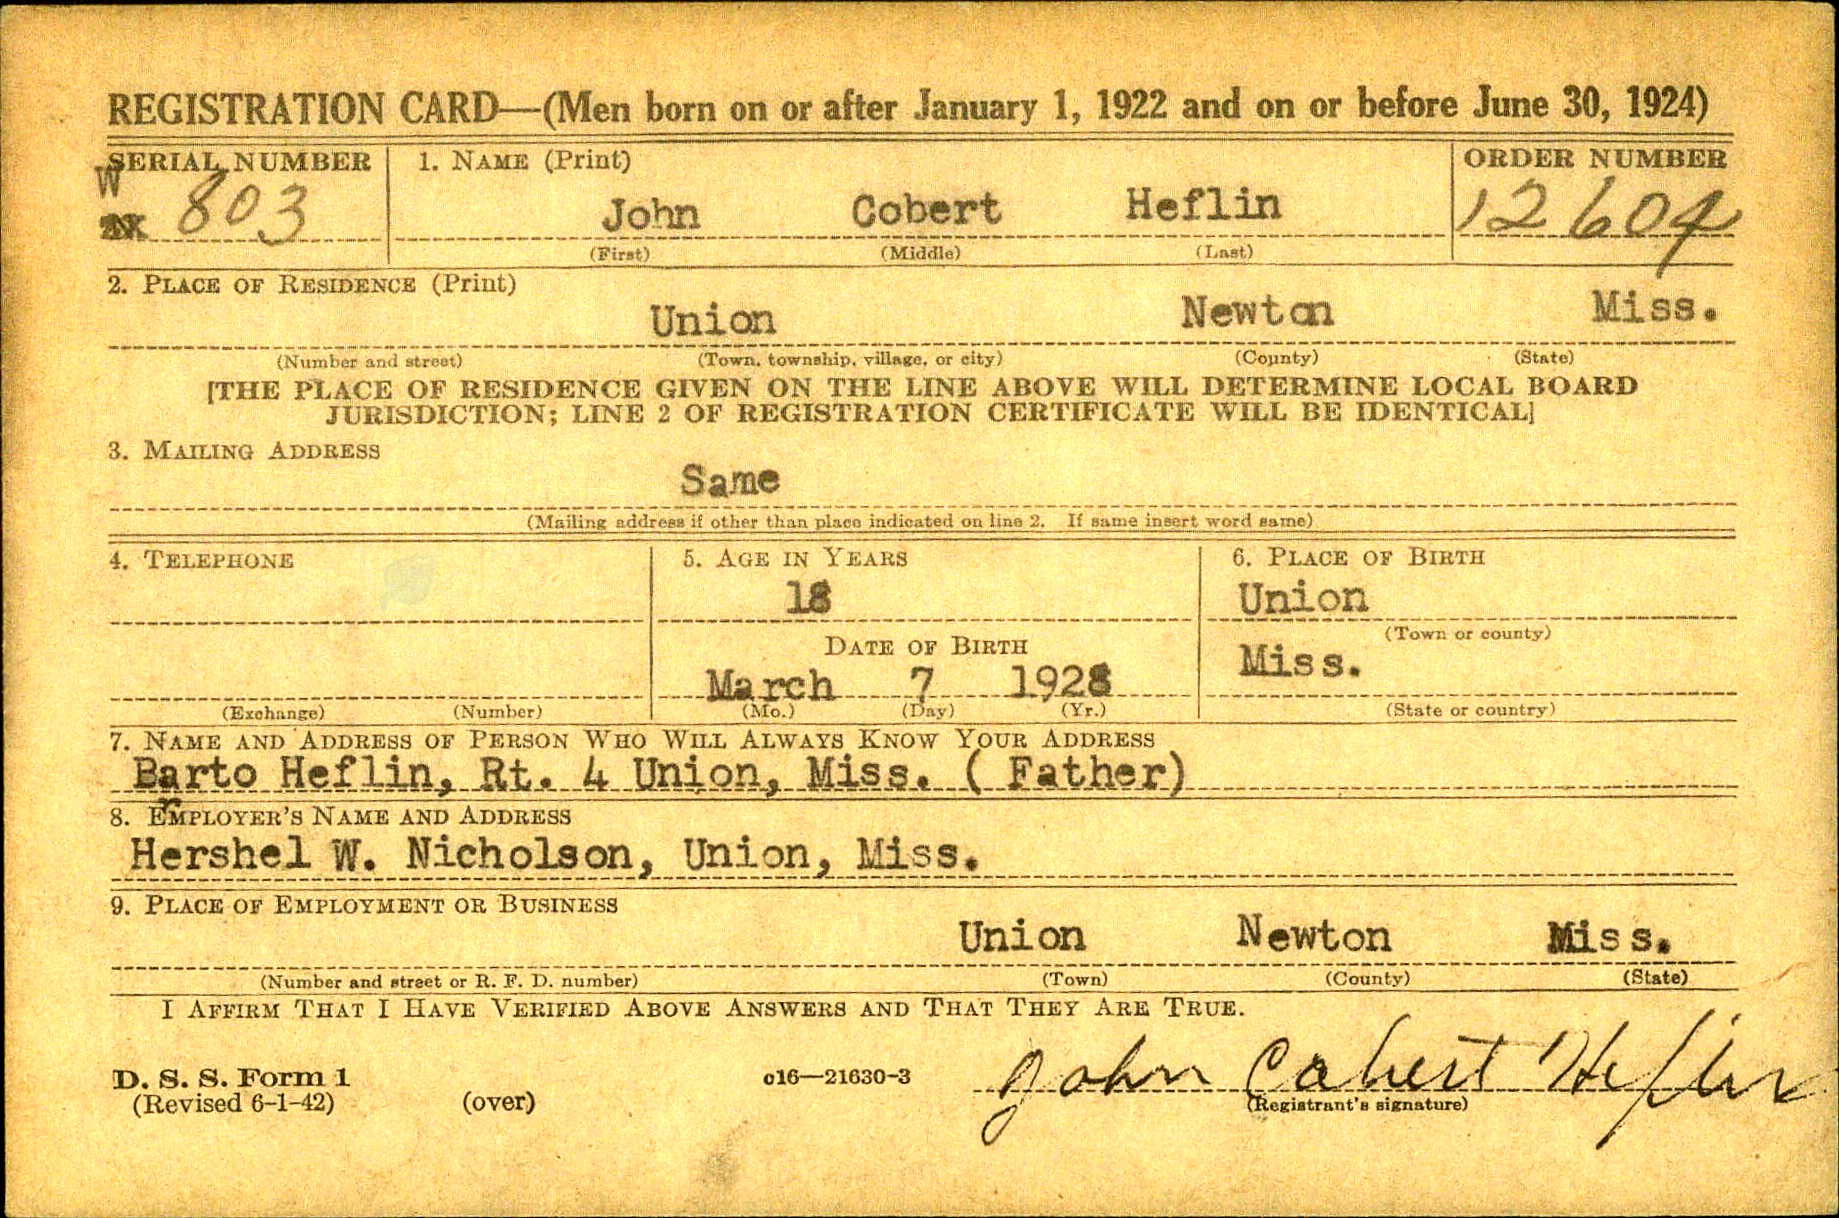 REGISTRATION CARD—(Men born on or after January 1, 1922 and on or before June 30, 1924)
SERIAL NUMBER 1. NAME (Print) ORDER NUMBER
W 803 John Cobert Heflin 12604
(First) (Middle) (Last)
2. PLACE OF RESIDENCE (Print)
Union Newton Miss.
(Number and street) (Town, township, village, or city) (County) (State)
[THE PLACE OF RESIDENCE GIVEN ON THE LINE ABOVE WILL DETERMINE LOCAL BOARD
JURISDICTION; LINE 2 OF REGISTRATION CERTIFICATE WILL BE IDENTICAL]
3. MAILING ADDRESS
Same
(Mailing address if other than place indicated on line 2. If same insert word same)
4. TELEPHONE 5. AGE IN YEARS 6. PLACE OF BIRTH
18 Union
(Town or county)
DATE OF BIRTH
Miss.
March 7
(Exchange) (Number) (Mo.) (Day) (Yr.) (State or country)
7. NAME AND ADDRESS OF PERSON WHO WILL ALWAYS KNOW YOUR ADDRESS
Barto Heflin, Rt. 4 Union, Miss. ( Father)
8. EMPLOYER'S NAME AND ADDRESS
Hershel W. Nicholson, Union, Miss.
9. PLACE OF EMPLOYMENT OR BUSINESS
Union Newton Miss.
(Number and street or R. F. D. number) (Town) (County) (State)
I AFFIRM THAT I HAVE VERIFIED ABOVE ANSWERS AND THAT THEY ARE TRUE.
D. S. S. Form 1 c16—21630-3 John Cobert Heflin
(Revised 6-1-42) (over) (Registrant's signature)